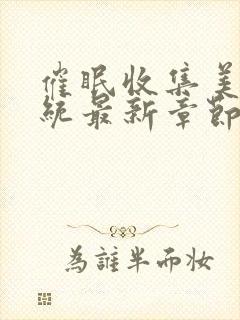 催眠收集美
統最新章節
為誰半而妝